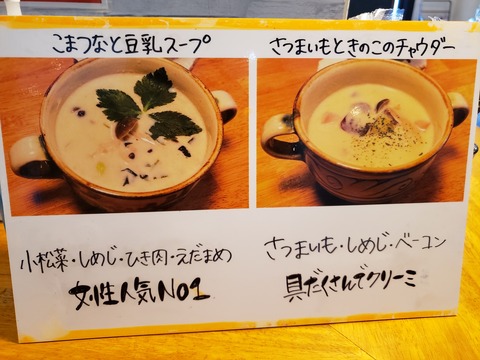 こまつなと豆乳スープ
さつまいもときのこのチャウダー
小松菜・しめじ・ひき肉・えだまめ
女性人気NO1
さつまいも・しめじ・ベーコン
具だくさんでクリーミ